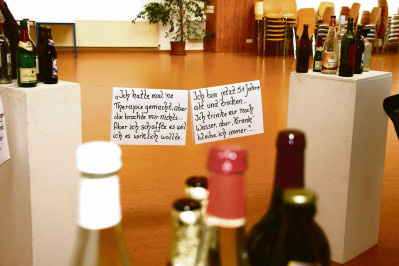 „Ich hatte mal 'ne
Therapie gemacht, aber
die brachte mir nichts...
Aber ich schaffte es weil
ich es wirklich wollte.
Ich bin jetzt 51 Jahre
alt und trocken...
Ich trinke nur noch
Wasser, aber „Krank“
bleibe ich immer...“